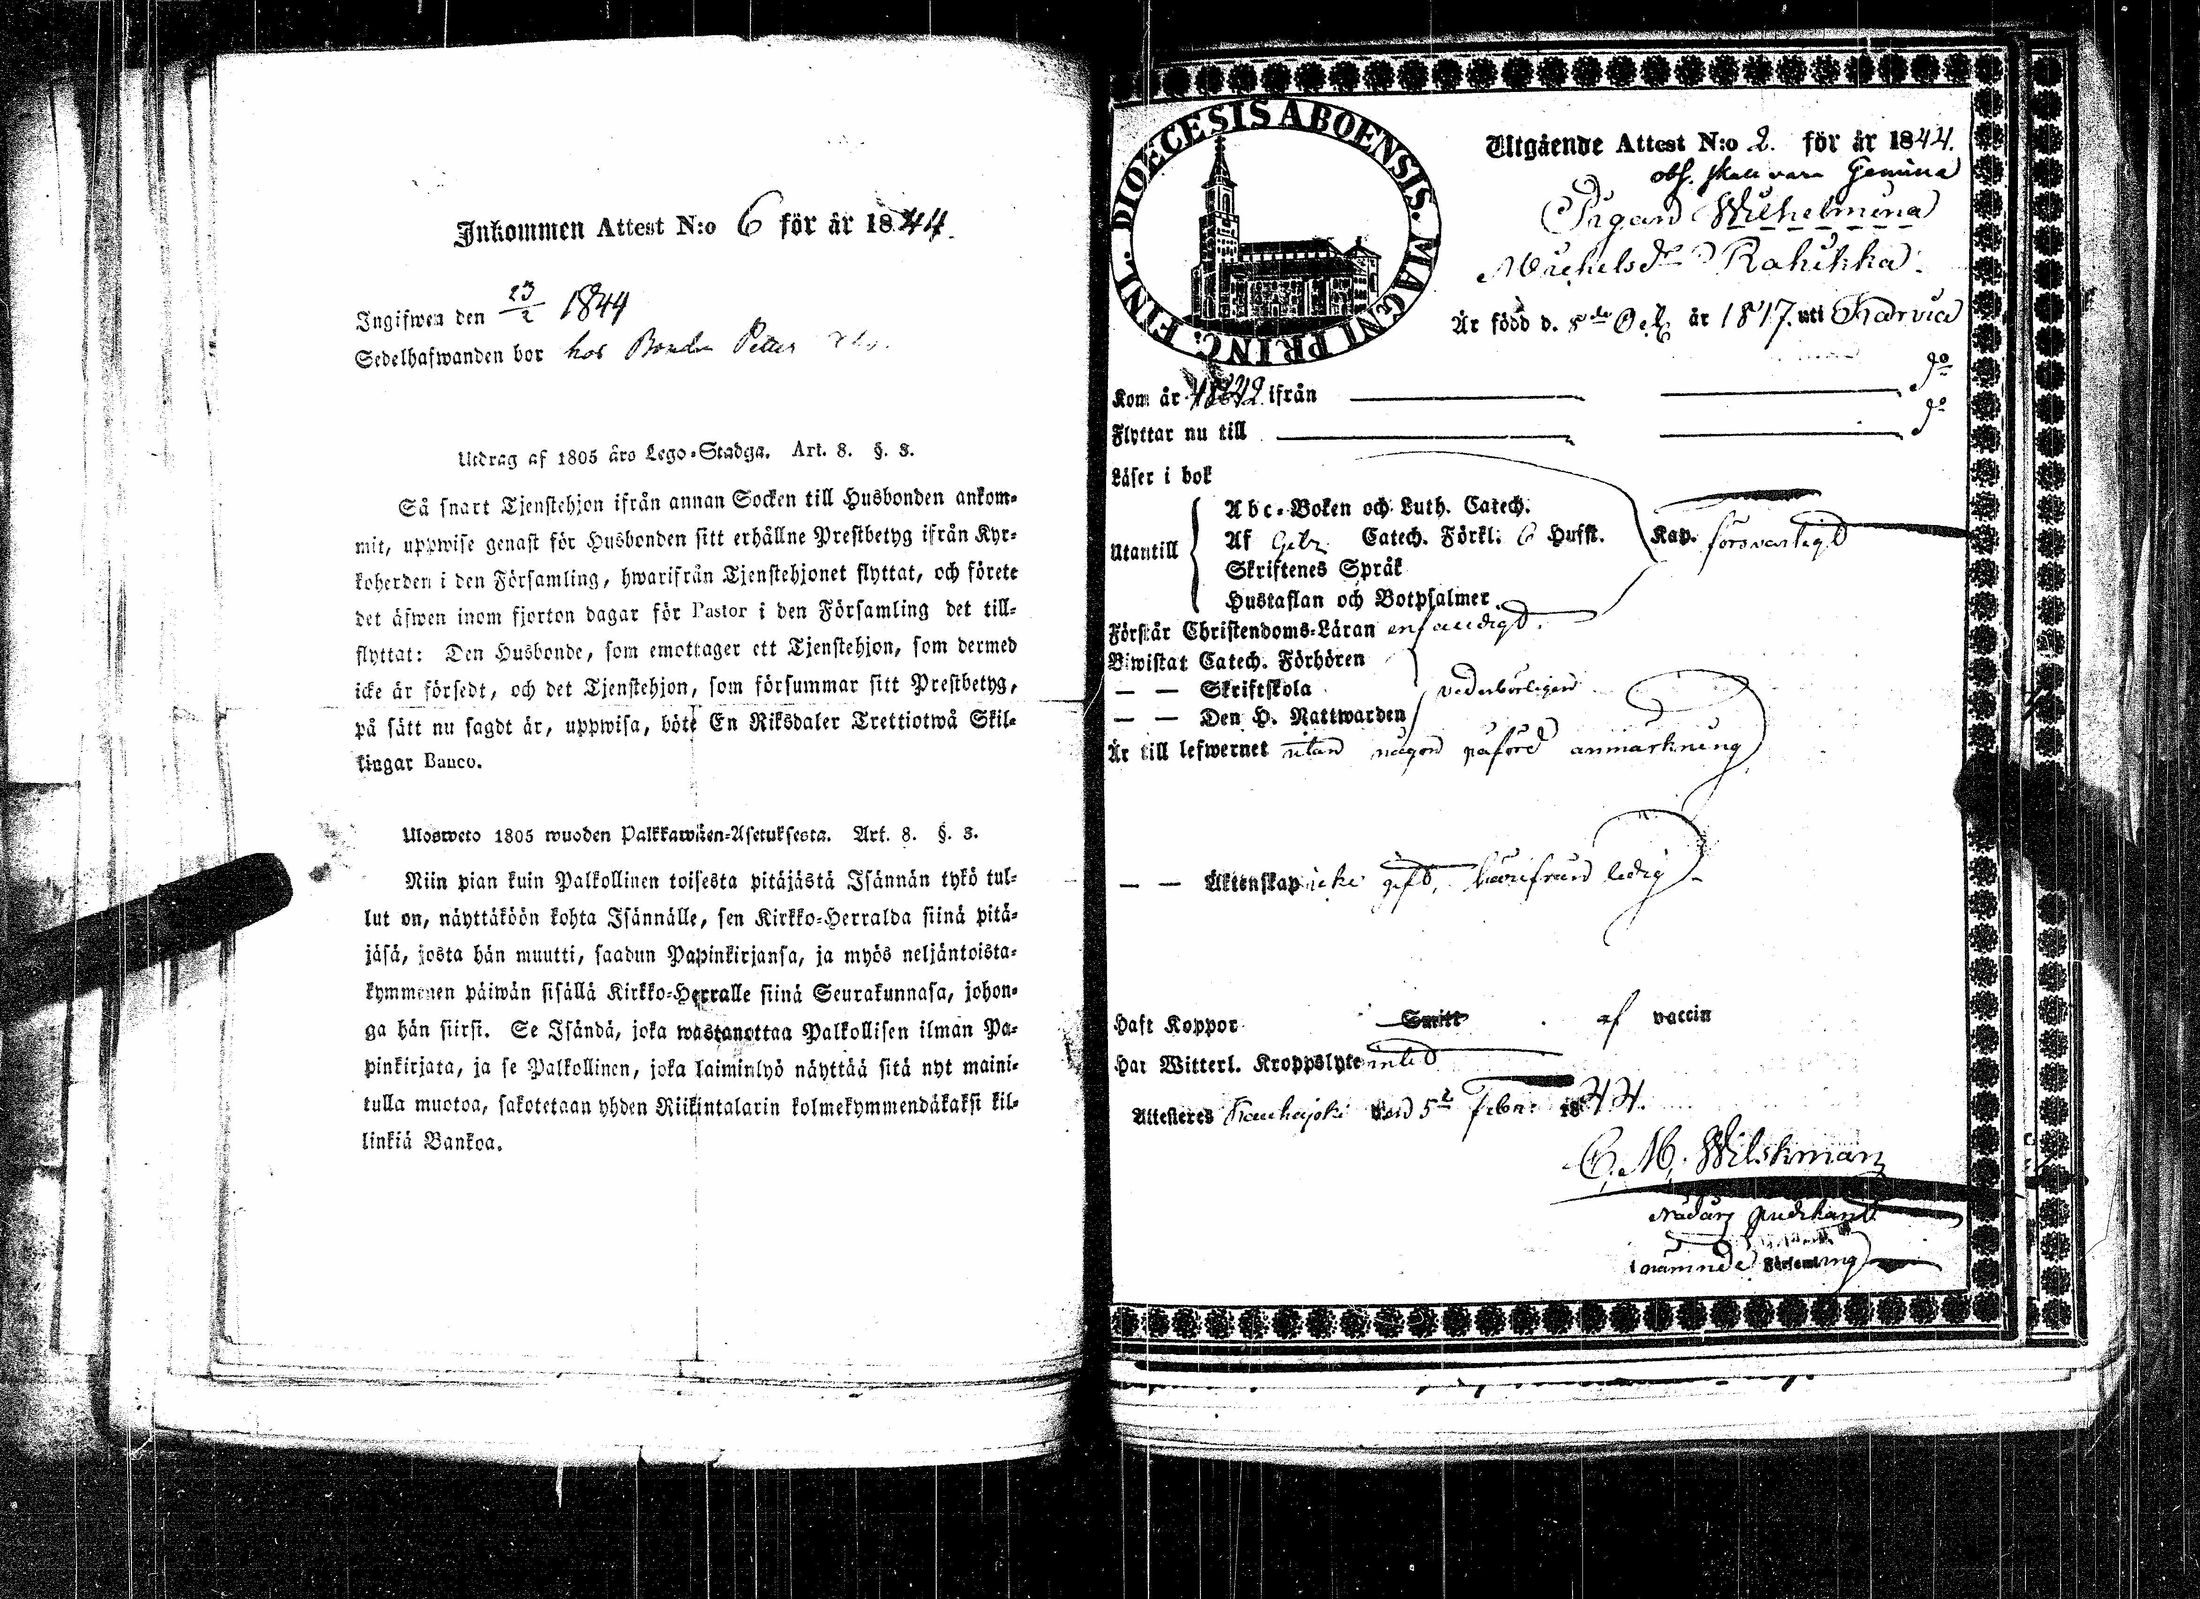 Inkommen Attest N:o 6 för år 1844.
Ingifwen den 23/2 1844
Sedelhafwanden bor hos Bonden Petter
Utdrag af 1805 års Lego-Stadga. Art. 8. §. 3.
Så snart Tjenstehjon ifrån annan Socken till Husbonden ankom-
mit, uppwise genast för Husbonden sitt erhållne Prestbetyg ifrån Kyr-
koherden i den Församling, hwarifrån Tjenstehjonet flyttat, och förete
det äfwen inom fjorton dagar för Pastor i den Församling det till-
flyttat: Den Husbonde, som emottager ett Tjenstehjon, som dermed
icke är försedt, och det Tjenstehjon, som försummar sitt Prestbetyg,
på sätt nu sagdt är, uppwisa, böte En Riksdaler Trettiotwå Skil-
lingar Banco.
Ulosweto 1805 wuoden Palkkawäen-Asetuksesta. Art. 8. §. 3.
Niin pian kuin Palkollinen toisesta pitäjästä Isännän tykö tul-
lut on, näyttäköön kohta Isännälle, sen Kirkko-Herralda siinä pitä-
jäsä, josta hän muutti, saadun Papinkirjansa, ja myös neljäntoista-
kymmenen päiwän sisällä Kirkko-Herralle siinä Seurakunnasa, johon-
ga hän siirsi. Se Isändä, joka wastanottaa Palkollisen ilman Pa-
pinkirjata, ja se Palkollinen, joka laiminlyö näyttää sitä nyt maini-
tulla muotoa, sakotetaan yhden Riikintalarin kolmekymmendäkaksi kil-
linkiä Bankoa.
FINL. DIOECESIS ABOENSIS. MAGNI PRINC.
Utgående Attest N:o 2. för år 1844.
obs. skall vara Gemina
Pigan Wilhelmina
Michelsdr Rahikka
Är född d. 8de Oct. år 1817. uti Karvia
Kom år 1842 ifrån do
Flyttar nu till do
Läser i bok
Utantill
Abc-Boken och Luth. Catech.
Af Catech. Förkl: 6 Hufst. Kap. försvarligt
Skriftenes Språk
Hustaflan och Botpsalmer
Förstår Christendoms-Läran enfaldigt.
Biwistat Catech. Förhören
— — Skriftskola vederbörligen
— — Den H. Nattwarden
Är till lefwernet utan någon påförd anmärkning
— — Äktenskap icke gift, härifrån ledig
Haft Koppor Smitt af vaccin
Har Witterl. Kroppslyte intet
Attesteras Kauhajoki den 5te Febr: 1844.
C. M. Wilskman
Nådårs predikant
i nämnde Församling